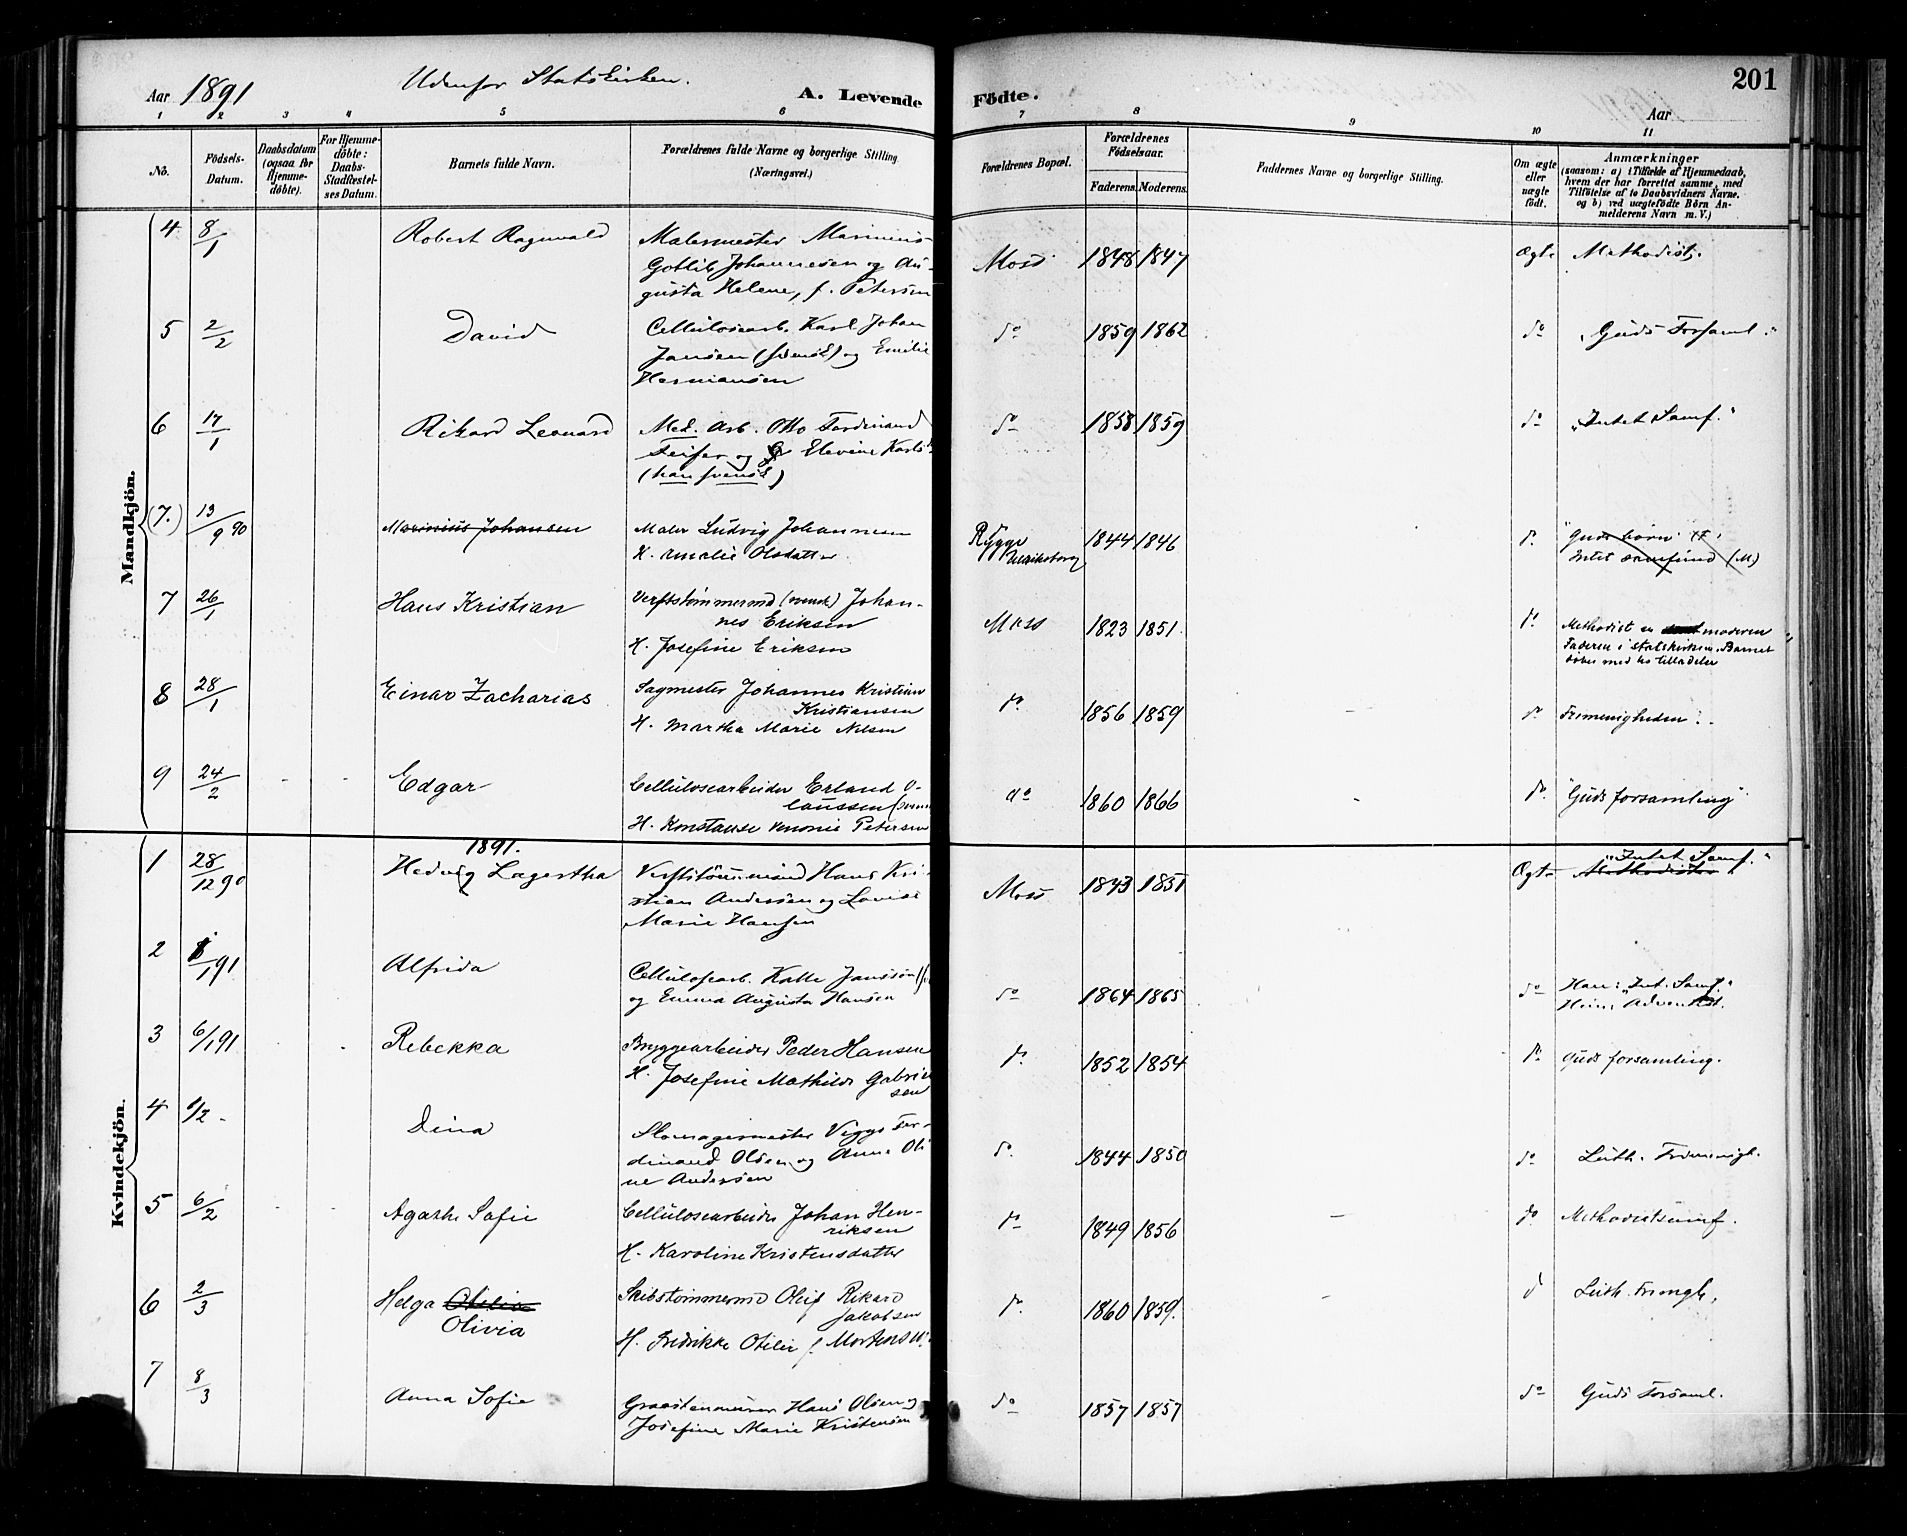 Aar 1891 Udenfor Statskirken. A. Levende Fødte. Aar 201
1 2 3 4 5 6 7 8 9 10 11
No.
Fødsels-Datum.
Daabsdatum (ogsaa for Hjemmedöbte).
For Hjemmedöbte: Daabs-Stadfæstelses Datum.
Barnets fulde Navn.
Forældrenes fulde Navne og borgerlige Stilling. (Næringsvei.)
Forældrenes Bopæl.
Forældrenes Födselsaar.
Faderens. Moderens.
Faddernes Navne og borgerlige Stilling.
Om ægte eller uægte født.
Anmærkninger
(saasom: a) i Tilfælde af Hjemmedaab,
hvem der har forrettet samme, med
Tilføielse af to Daabsvidners Navne.
og b) ved uægtefødte Börn Anmelderens Navn m. V.)
Mandkjön.
4 8/1 Robert Ragnvald Malermester Marinius Moss 1848 1847 Ægte Methodist.
Gotlib Johannesen og Au-
gusta Helene, f. Petersen
5 2/2 David Cellulosearb. Karl Johan do 1859 1862 do "Guds Forsaml."
Jansen (svensk) og Emilie
Hermansen
6 17/1 Rikard Leonard Mek. Arb. Otto Ferdinand do 1858 1859 do "Intet Samf."
og Elevine Karls
(han svensk)
(7.) 13/9 90 Marinius Johansen Maler Ludvig Johannesen Rygge 1844 1846 do "Guds børn"
H. Amalie Olsdatter Ulriksborg Intet Samfund (M)
7 26/1 Hans Kristian Verftstømmermd (svensk) Johan- Moss 1823 1851 do Methodist er moderen
nes Eriksen Faderen i statskirken. Barnet
H. Josefine Eriksen døbes med hs tilladelse
8 28/1 Einar Zacharias Sagmester Johannes Kristian do 1856 1859 do Frimenigheden.
Kristiansen
H. Martha Marie Nilsen
9 24/2 Edgar Cellulosearbeider Erland O- do 1860 1866 do "Guds forsamling"
laussen
H. Konstanse Petersen
Kvindekjön.
1891.
1 28/12 90 Hedvig Lagertha Verftstömmermand Hans Kri- Moss 1843 1851 Ægte Methodister "Intet Samf."
stian Andersen og Lovise
Marie Hansen
2 /1 91 Alfrida Cellulosearb. Kalle Janssön do 1864 1865 do Han: "Int. Samf."
og Emma Augusta Hansen Hun: Adventist.
3 6/1 91 Rebekka Bryggearbeider Peder Hansen do 1852 1854 do Guds forsamling.
H. Josefine Mathilde Gabriel
sen
4 1/2 - Dina Skomagermester Viggo Fer- do 1844 1850 do Luth. Frimenigh.
dinand Olsen og Anne Oli
ne Andersen
5 6/2 Agathe Sofie Cellulosearbeider Johan Hen- do 1849 1856 do Methodistsamf.
riksen
H. Karoline Kristensdatter
6 2/3 Helga Otilie Skibstømmermd Oluf Rikard do 1860 1859. d Luth. Frimgh.
Olivia Jakobsen
H. Fredrikke Otilie f Mortensen
7 8/3 Anna Sofie Graastensmurer Hans Olsen og do 1857 1857 do Guds Forsaml.
Josefine Marie Kristensen